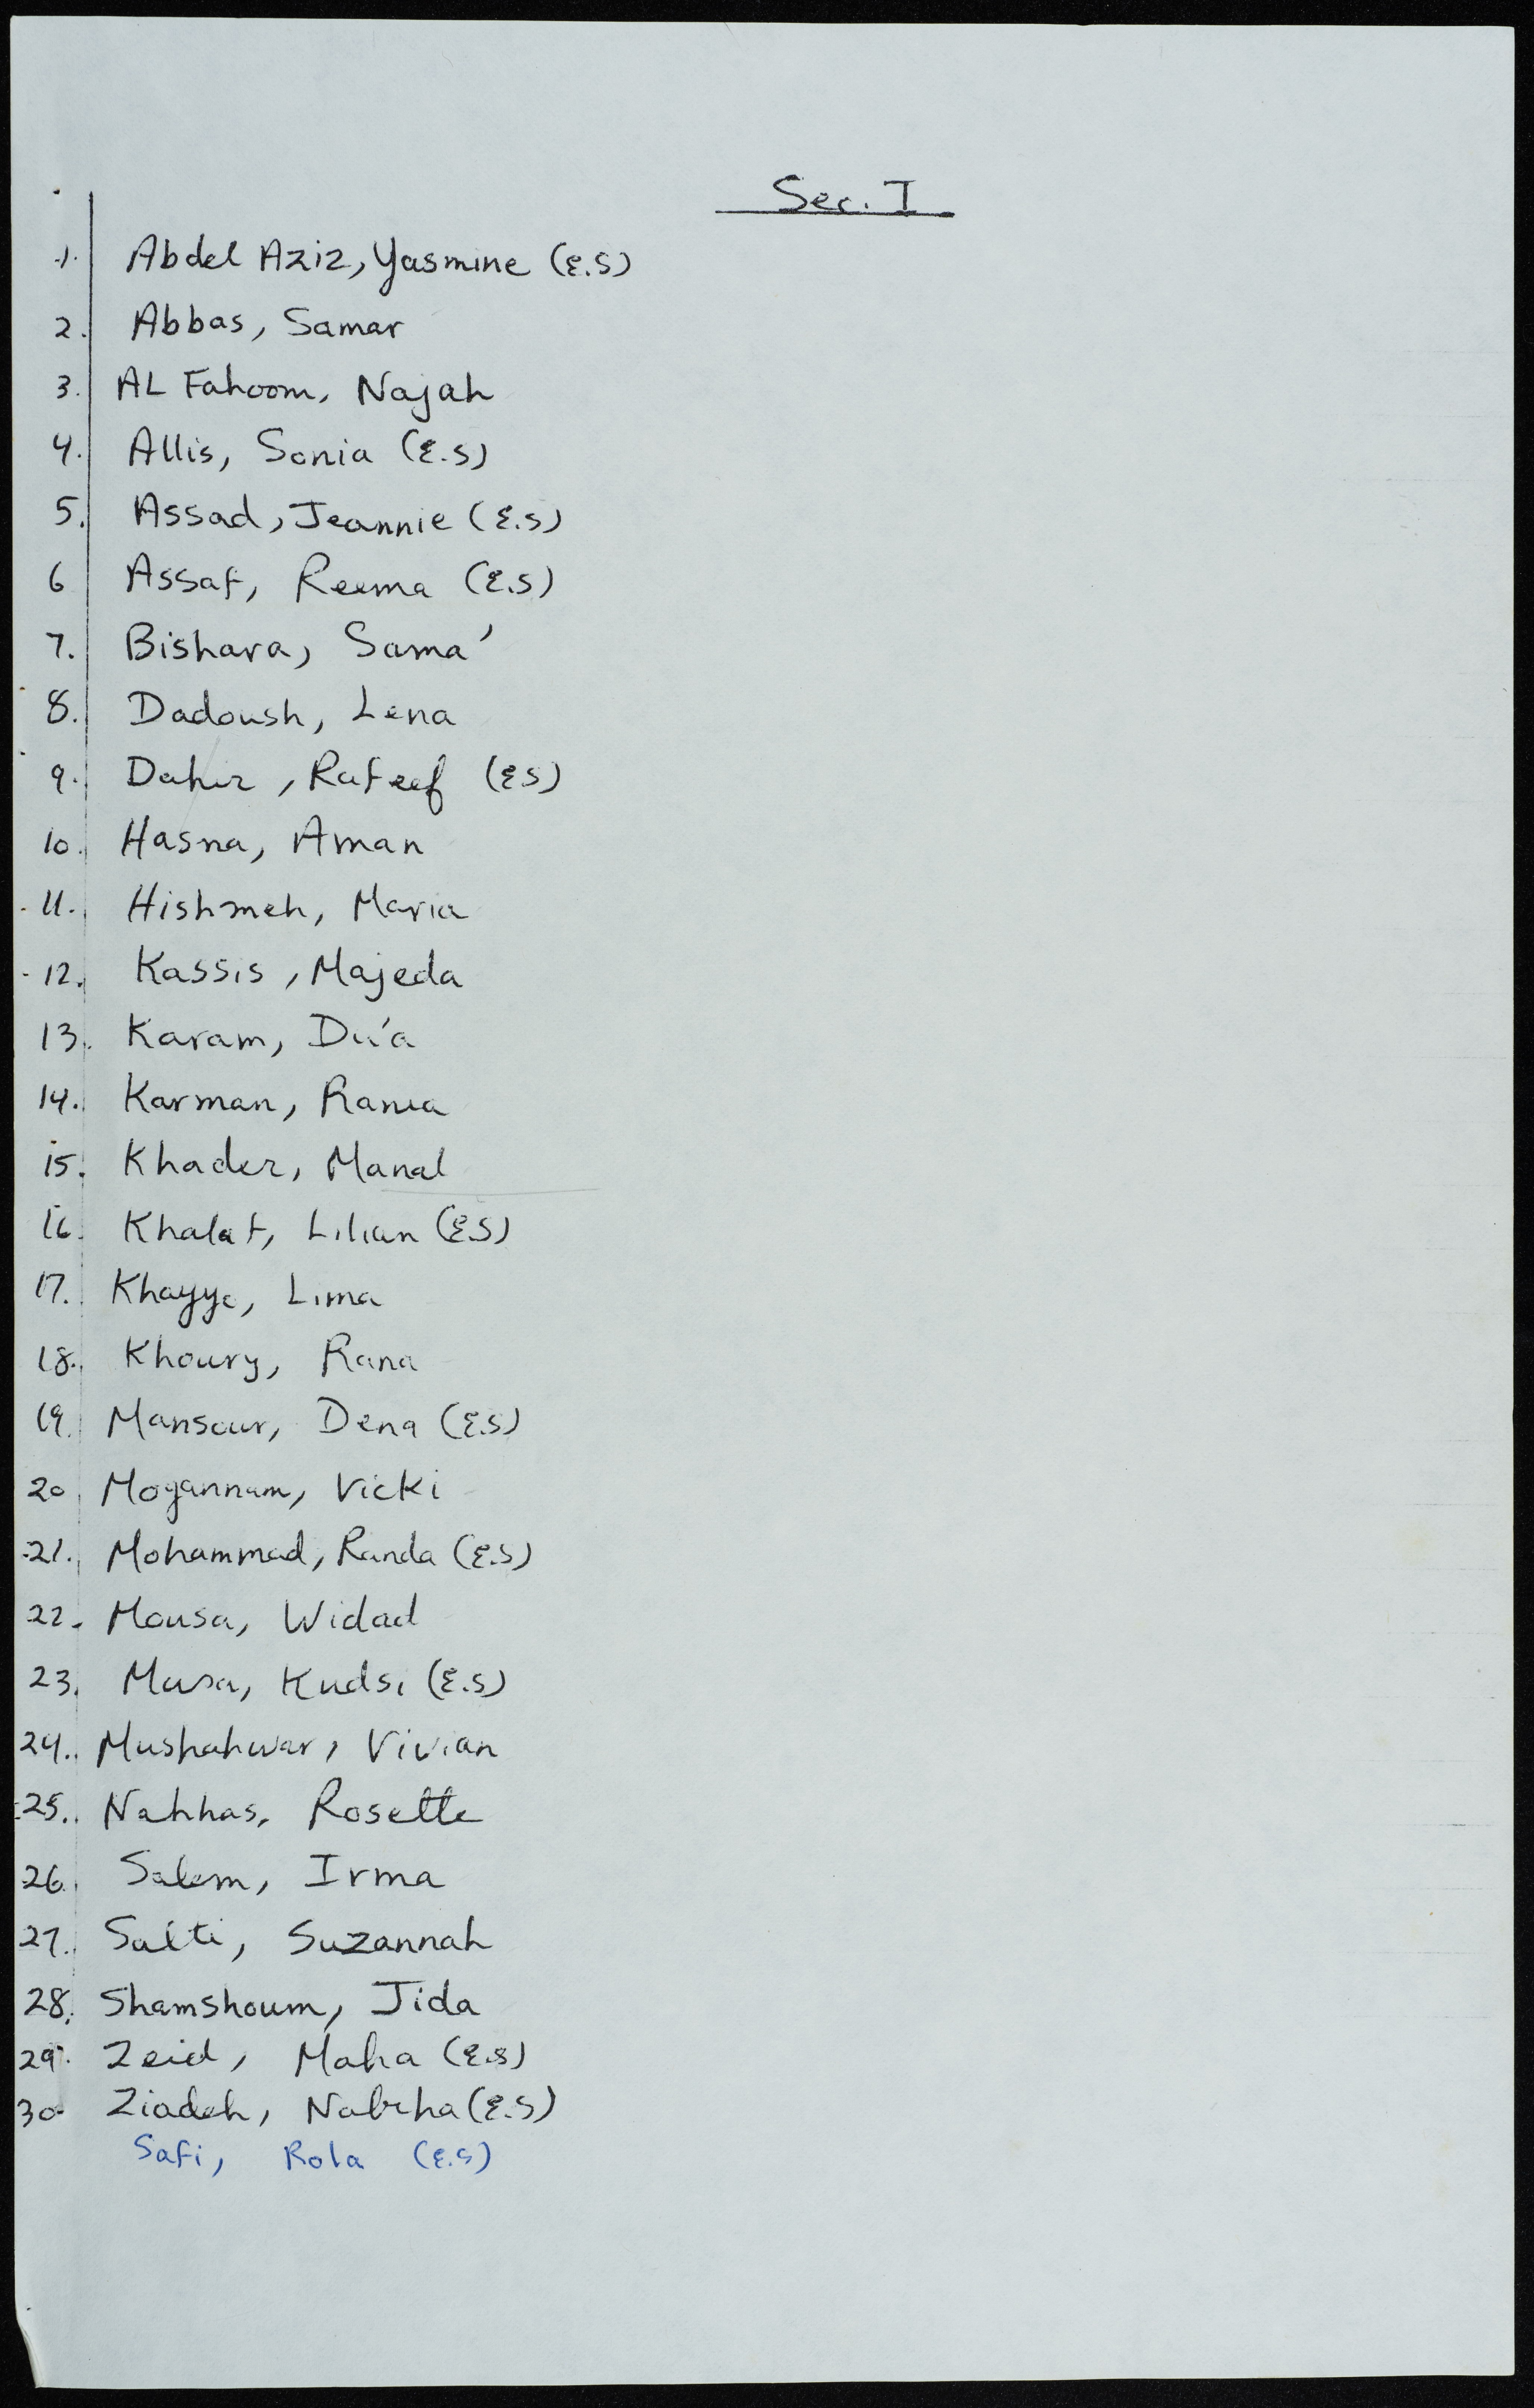 Sec. I
1. Abdel Aziz, Yasmine (E.S)
2. Abbas, Samar
3. AL Fahoom, Najah
4. Allis, Sonia (E.S)
5. Assad, Jeannie (E.S)
6 Assaf, Reema (E.S)
7. Bishara, Sama'
8. Dadoush, Lena
9. Dahir, Rafeef (E.S)
10. Hasna, Aman
11. Hishmeh, Maria
12. Kassis, Majeda
13. Karam, Du'a
14. Karman, Rania
15. Khader, Manal
16. Khalaf, Lilian (E.S)
17. Khayyo, Lima
18. Khoury, Rana
19. Mansour, Dena (E.S)
20. Mogannam, Vicki
21. Mohammad, Randa (E.S)
22. Mousa, Widad
23. Musa, Kudsi (E.S)
24. Mushahwar, Vivian
25. Nahhas, Rosette
26. Salem, Irma
27. Salti, Suzannah
28. Shamshoum, Jida
29. Zeid, Maha (E.S)
30. Ziadeh, Nabiha (E.S)
Safi, Rola (E.S)